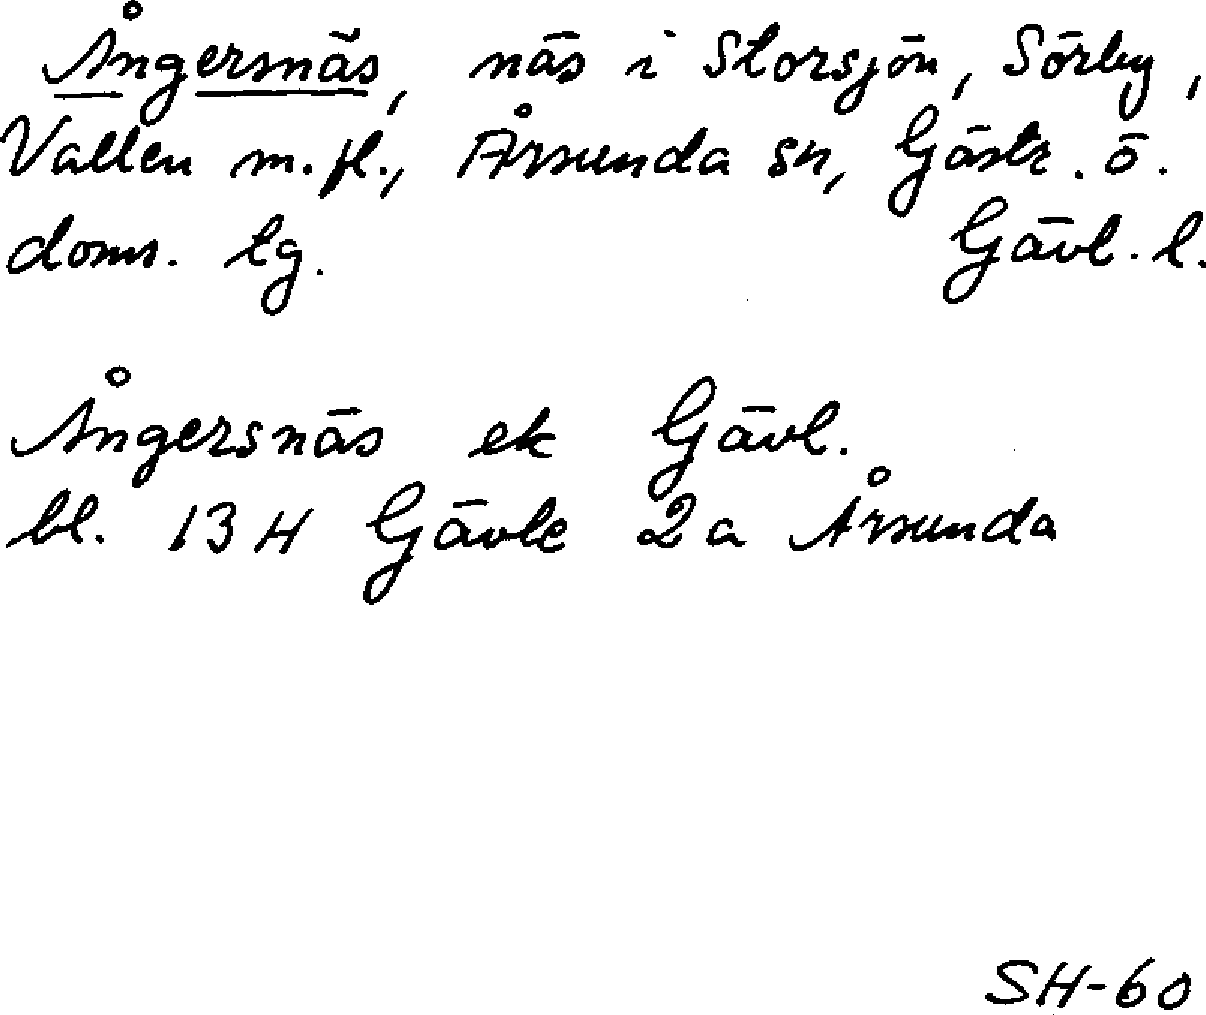 Ångersnäs, näs i Storsjön, Sörby,
Vallen m.fl., Årsunda sn, Gästr. ö.
doms. tg. Gävl. l.
Ångersnäs ek Gävl.
bl. 13 H Gävle 2a Årsunda
SH-60